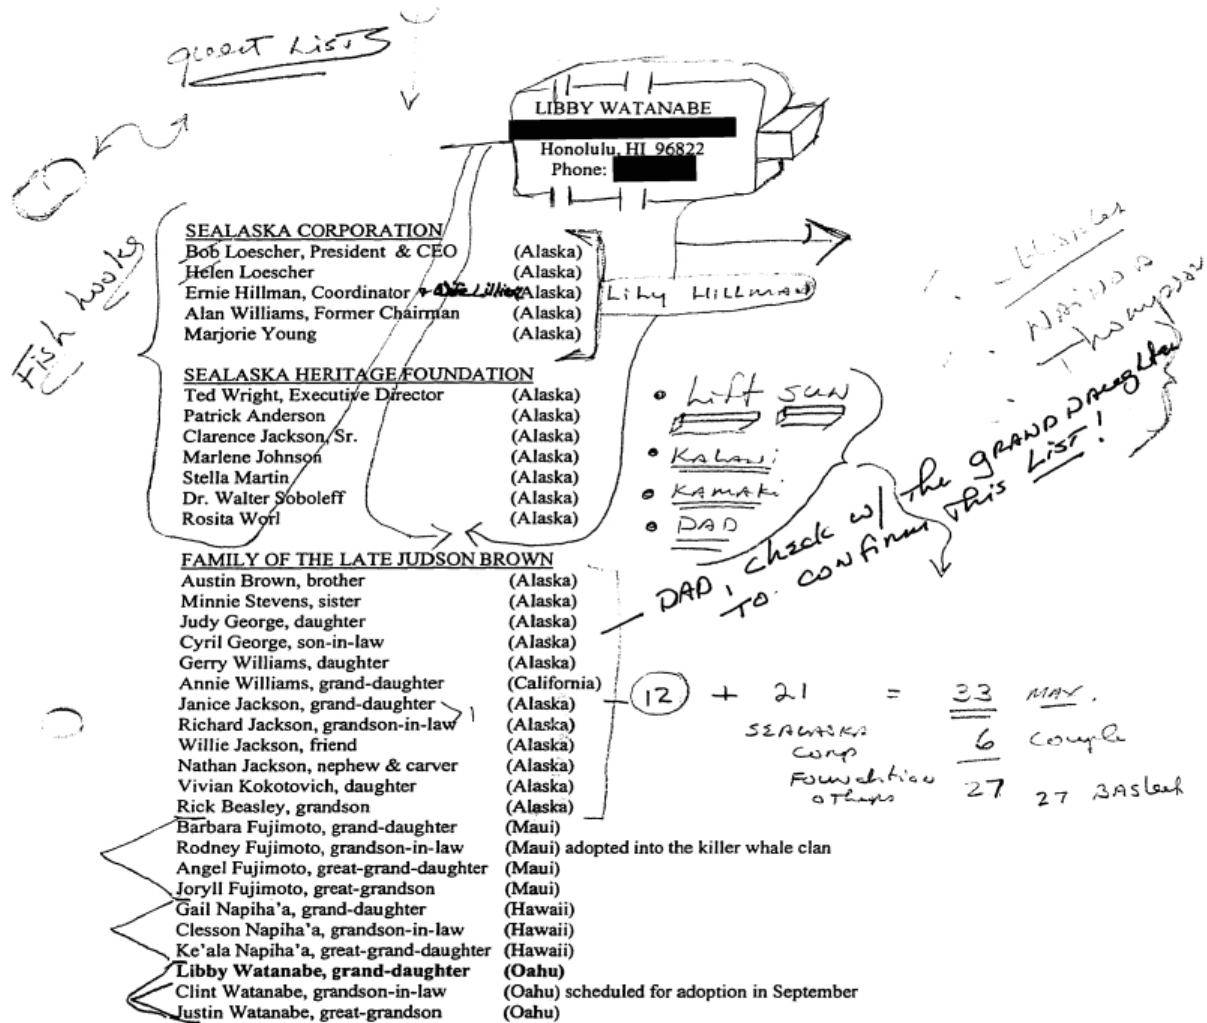 guest List
LIBBY WATANABE
Honolulu, HI 96822
Phone:
Fish hooks
SEALASKA CORPORATION
Bob Loescher, President & CEO (Alaska)
Helen Loescher (Alaska)
Ernie Hillman, Coordinator (Alaska)
LiLly HILLMAN
Alan Williams, Former Chairman (Alaska)
Marjorie Young (Alaska)
NAINOA
Thompson
SEALASKA HERITAGE FOUNDATION
Ted Wright, Executive Director (Alaska)
Patrick Anderson (Alaska)
Clarence Jackson, Sr. (Alaska)
Marlene Johnson (Alaska)
Stella Martin (Alaska)
Dr. Walter Soboleff (Alaska)
Rosita Worl (Alaska)
• Lift SUN
• KALANI
• KAMAKi
• DAD
DAD, check w/ the GRAND DAUghter
TO CONFIRM This LIST!
FAMILY OF THE LATE JUDSON BROWN
Austin Brown, brother (Alaska)
Minnie Stevens, sister (Alaska)
Judy George, daughter (Alaska)
Cyril George, son-in-law (Alaska)
Gerry Williams, daughter (Alaska)
Annie Williams, grand-daughter (California)
Janice Jackson, grand-daughter (Alaska)
Richard Jackson, grandson-in-law (Alaska)
Willie Jackson, friend (Alaska)
Nathan Jackson, nephew & carver (Alaska)
Vivian Kokotovich, daughter (Alaska)
Rick Beasley, grandson (Alaska)
12 + 21 = 33 MAX.
SEALASKA
Corp 6 Couple
Foundation
oThers 27 27 BASket
Barbara Fujimoto, grand-daughter (Maui)
Rodney Fujimoto, grandson-in-law (Maui) adopted into the killer whale clan
Angel Fujimoto, great-grand-daughter (Maui)
Joryll Fujimoto, great-grandson (Maui)
Gail Napiha'a, grand-daughter (Hawaii)
Clesson Napiha'a, grandson-in-law (Hawaii)
Ke'ala Napiha'a, great-grand-daughter (Hawaii)
Libby Watanabe, grand-daughter (Oahu)
Clint Watanabe, grandson-in-law (Oahu) scheduled for adoption in September
Justin Watanabe, great-grandson (Oahu)